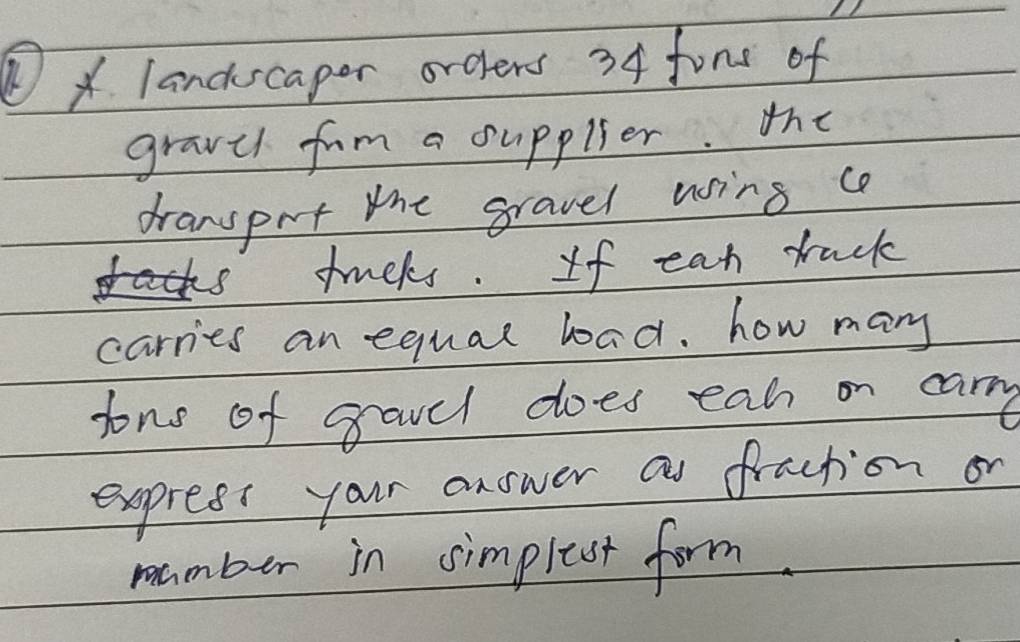 A landscaper orders 34 tons of
gravel from a supplier. the
transport the gravel using
trucks. If eah truck
carries an equal load. how many
tons of gravel does eah on carry
express your answer as fraction or
mumber in simplest form.